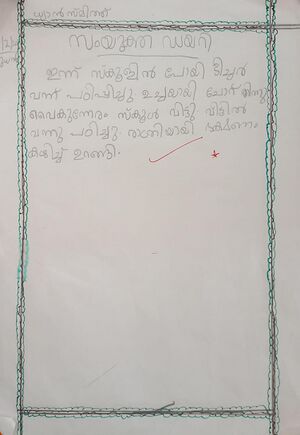 ധ്യാൻ സ്മിത്ത്
സംയുക്ത ഡയറി
ഇന്ന് സ്കൂളിൽ പോയി ടീച്ചർ
വന്ന് പഠിപ്പിച്ചു. ഉച്ചയായി ചോറ് തിന്നു
വൈകുന്നേരം സ്കൂൾ വിട്ടു വീട്ടിൽ
വന്നു പഠിച്ചു. രാത്രിയായി ഭക്ഷണം
കഴിച്ച് ഉറങ്ങി.